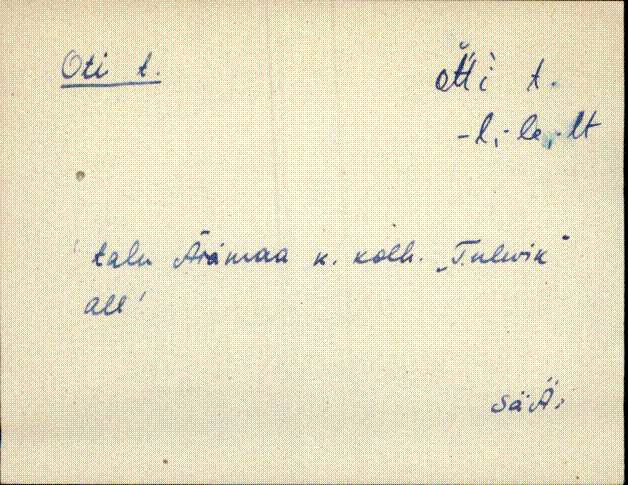 Oti t.
otti t.
-l, -le, -lt
' talu Äiamaa k. kolh. „Tulevik"
all '
SäÄ.